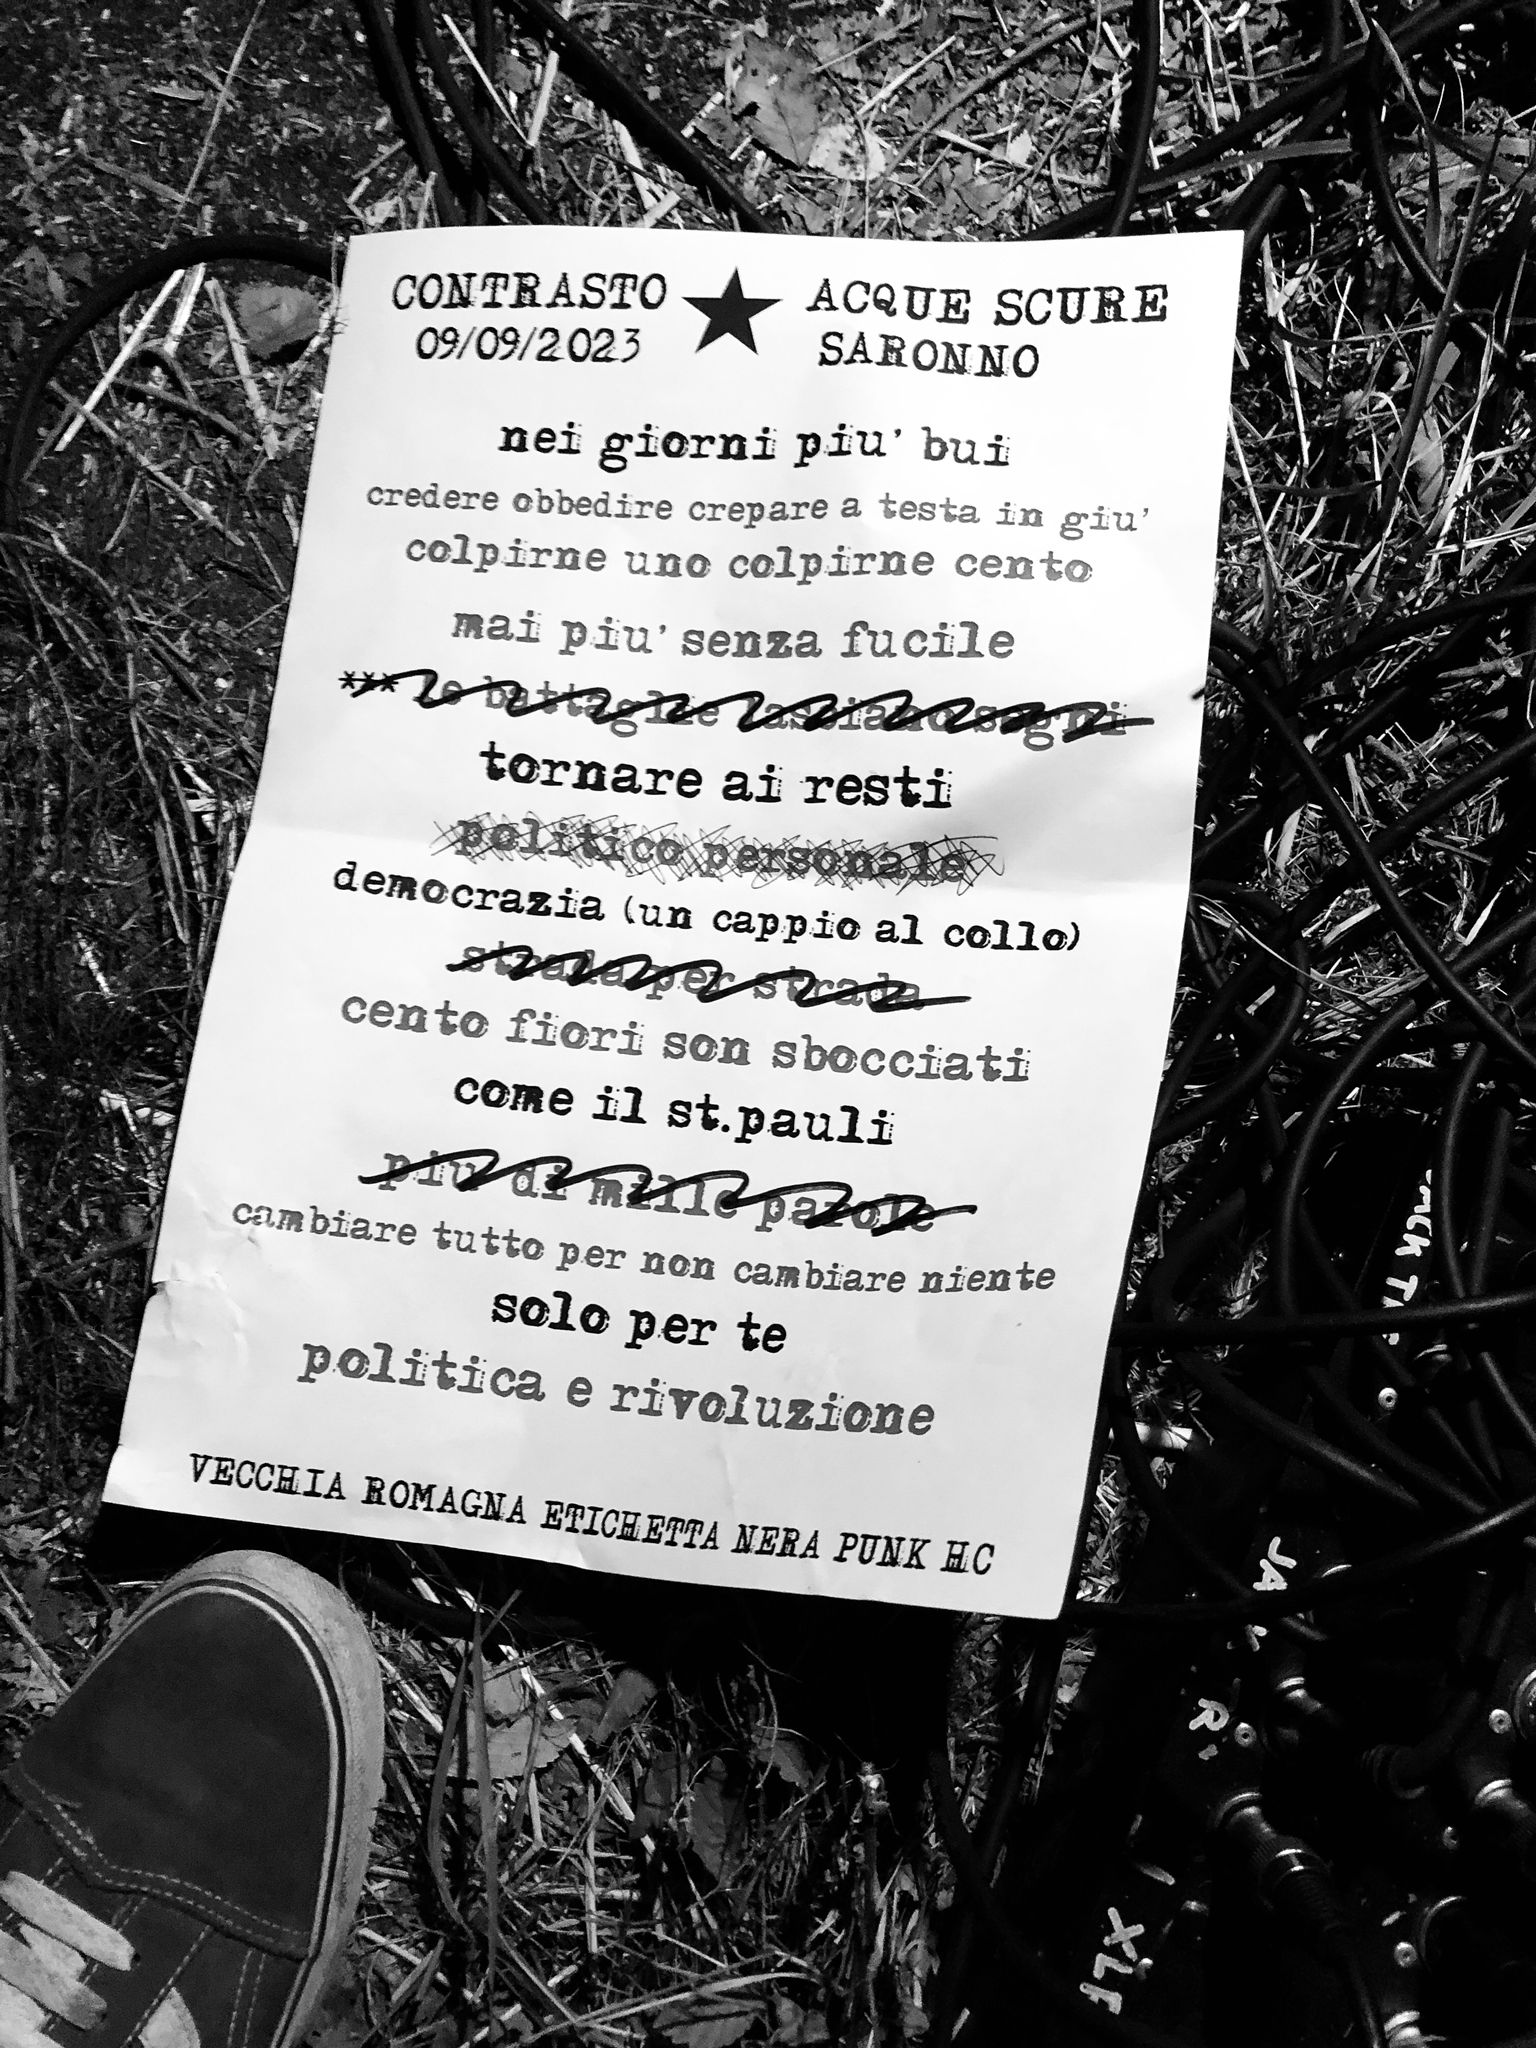 CONTRASTO ★ ACQUE SCURE
09/09/2023 SARONNO
nei giorni piu' bui
credere obbedire crepare a testa in giu'
colpirne uno colpirne cento
mai piu' senza fucile
*** le battaglie lasciano segni
tornare ai resti
politico personale
democrazia (un cappio al collo)
strada per strada
cento fiori son sbocciati
come il st.pauli
piu di mille parole
cambiare tutto per non cambiare niente
solo per te
politica e rivoluzione
VECCHIA ROMAGNA ETICHETTA NERA PUNK HC
XLF